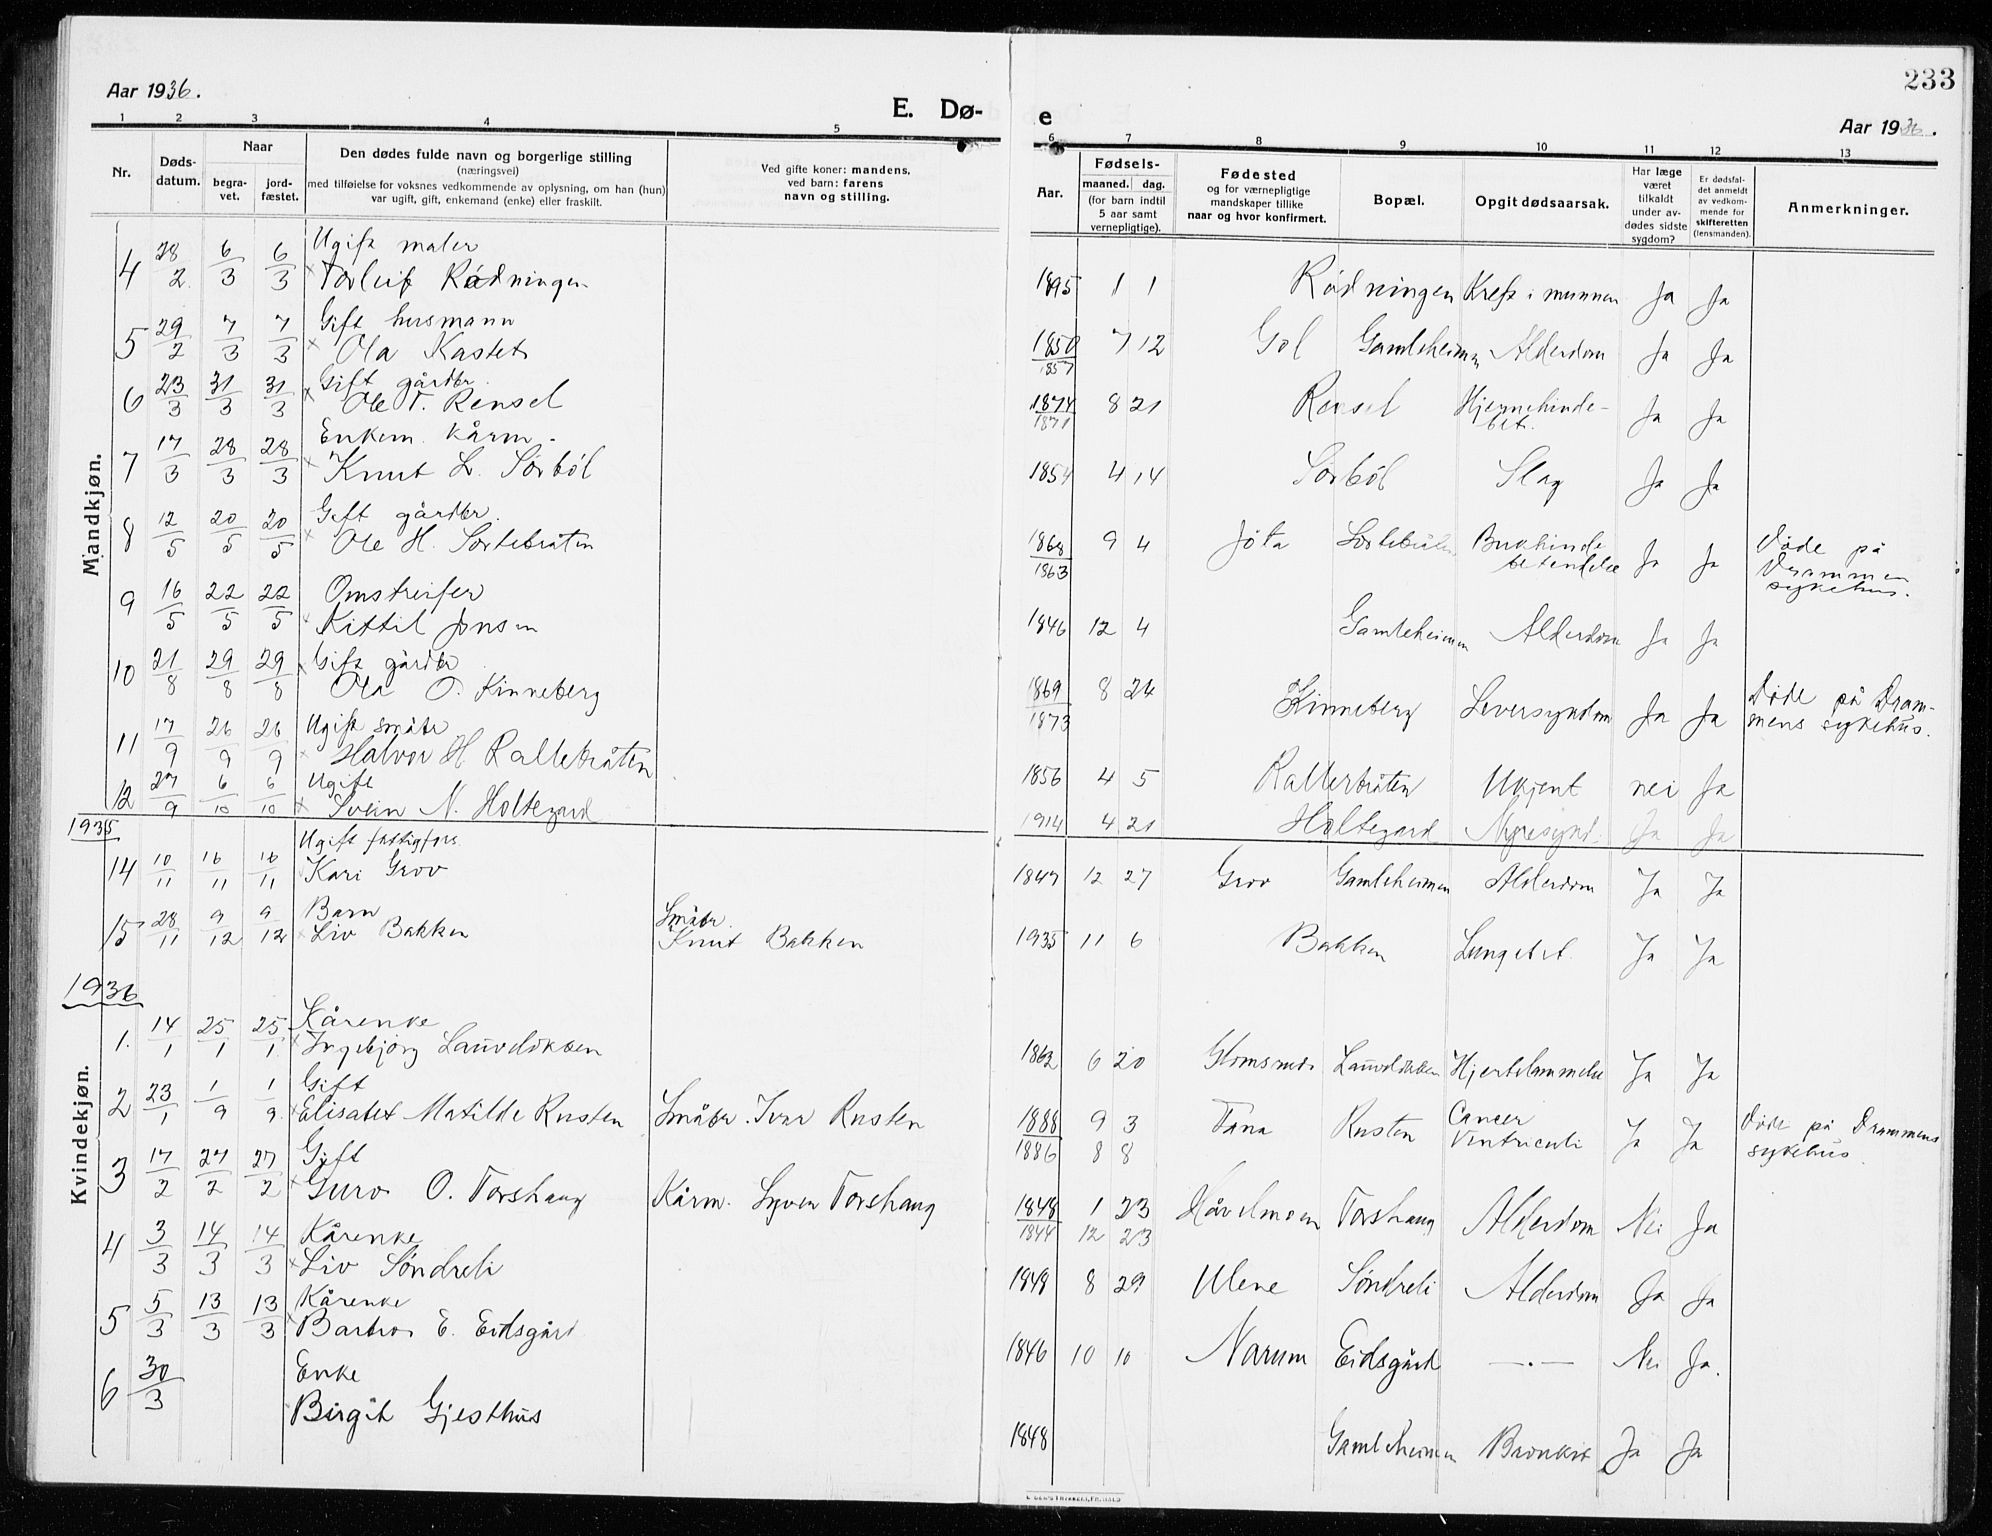 233
Aar 1936.
E. Dø-
e
Aar 1936.
1 2 3 4 5 6 7 8 9 10 11 12 13
Nr.
Døds-
datum.
Naar
begra-
vet.
jord-
fæstet.
Den dødes fulde navn og borgerlige stilling
(næringsvei)
med tilføielse for voksnes vedkommende av oplysning, om han (hun)
var ugift, gift, enkemand (enke) eller fraskilt.
Ved gifte koner: mandens,
ved barn: farens
navn og stilling.
Aar.
Fødsels-
maaned. dag.
(for barn indtil
5 aar samt
vernepligtige).
Fødested
og for værnepligtige
mandskaper tillike
naar og hvor konfirmert.
Bopæl.
Opgit dødsaarsak.
Har læge
været
tilkaldt
under av-
dødes sidste
sygdom?
Er dødsfal-
det anmeldt
av vedkom-
mende for
skifteretten
(lensmanden).
Anmerkninger.
Mandkjøn.
4 28/2 6/3 6/3 Ugift maler
Torleif Rødningen 1895 1 1 Rødningen Kreft i munnen Ja Ja
5 29/2 7/3 7/3 Gift husmann
Ola Kastet 1850 7 12 Gol Gamleheimen Alderdom Ja Ja
1857
6 23/3 31/3 31/3 Gift gårdbr.
Ole T. Rensel 1874 8 21 Rensel Hjernehinde-
bet. Ja Ja
1871
7 17/3 28/3 28/3 Enkem. kårm.
Knut L. Sørbøl 1854 4 14 Sørbøl Slag Ja Ja
8 12/5 20/5 20/5 Gift gårdbr.
Ole H. Sortebråten 1868 9 4 Jøta Sortebråten Bukhinde
betendelse Ja Ja Døde på
Drammen
sykehus.
1863
9 16/5 22/5 22/5 Omstreifer
Kittil Jonsen 1846 12 4 Gamleheimen Alderdom Ja Ja
10 21/8 29/8 29/8 Gift gårdbr
Ola O. Kinneberg 1869 8 24 Kinneberg Leversyndom Ja Ja Døde på Dram-
mens sykehus.
1873
11 17/9 26/9 26/9 Ugift småbr
Halvor H. Rallebråten 1856 4 5 Rallerbråten Ukjent nei Ja
12 27/9 6/10 6/10 Ugift
Svein N. Holtegard 1914 4 21 Holtegard Nyresynd. Ja Ja
1935
14 10/11 16/11 16/11 Ugift fattigfors.
Kari Grov 1847 12 27 Grov Gamleheimen Alderdom Ja Ja
15 28/11 9/12 9/12 Barn
Liv Bakken Småbr.
Knut Bakken 1935 11 6 Bakken Lungebet. Ja Ja
1936
Kvindekjøn.
1. 14/1 25/1 25/1 Kårenke
Ingebjørg Lauvdokken 1862 6 20 Lauvdokken Hjertelammelse Ja Ja
2 23/1 1/9 1/9 Gift
Elisabet Matilde Rusten Småbr. Ivar Rusten 1888 9 3 Tana Rusten Cancer
Ventriculi Ja Ja Døde på Drammens
sykehus.
1886 8 8
3 17/2 27/2 27/2 Gift
Guro O. Torshaug Kårm. Syver Torshaug 1848 1 23 Håvelmoen Torshaug Alderdom Nei Ja
1844 12 23
4 3/3 14/3 14/3 Kårenke
Liv Søndreli 1848 8 29 Ulene Søndreli Alderdom Ja Ja
5 5/3 13/3 13/3 Kårenke
Barbro E. Eidsgård 1846 10 10 Narum Eidsgård —.— Nei Ja.
6 30/3 Enke
Birgit Gjesthus 1848 Gamleheimen Bronkit Ja Ja